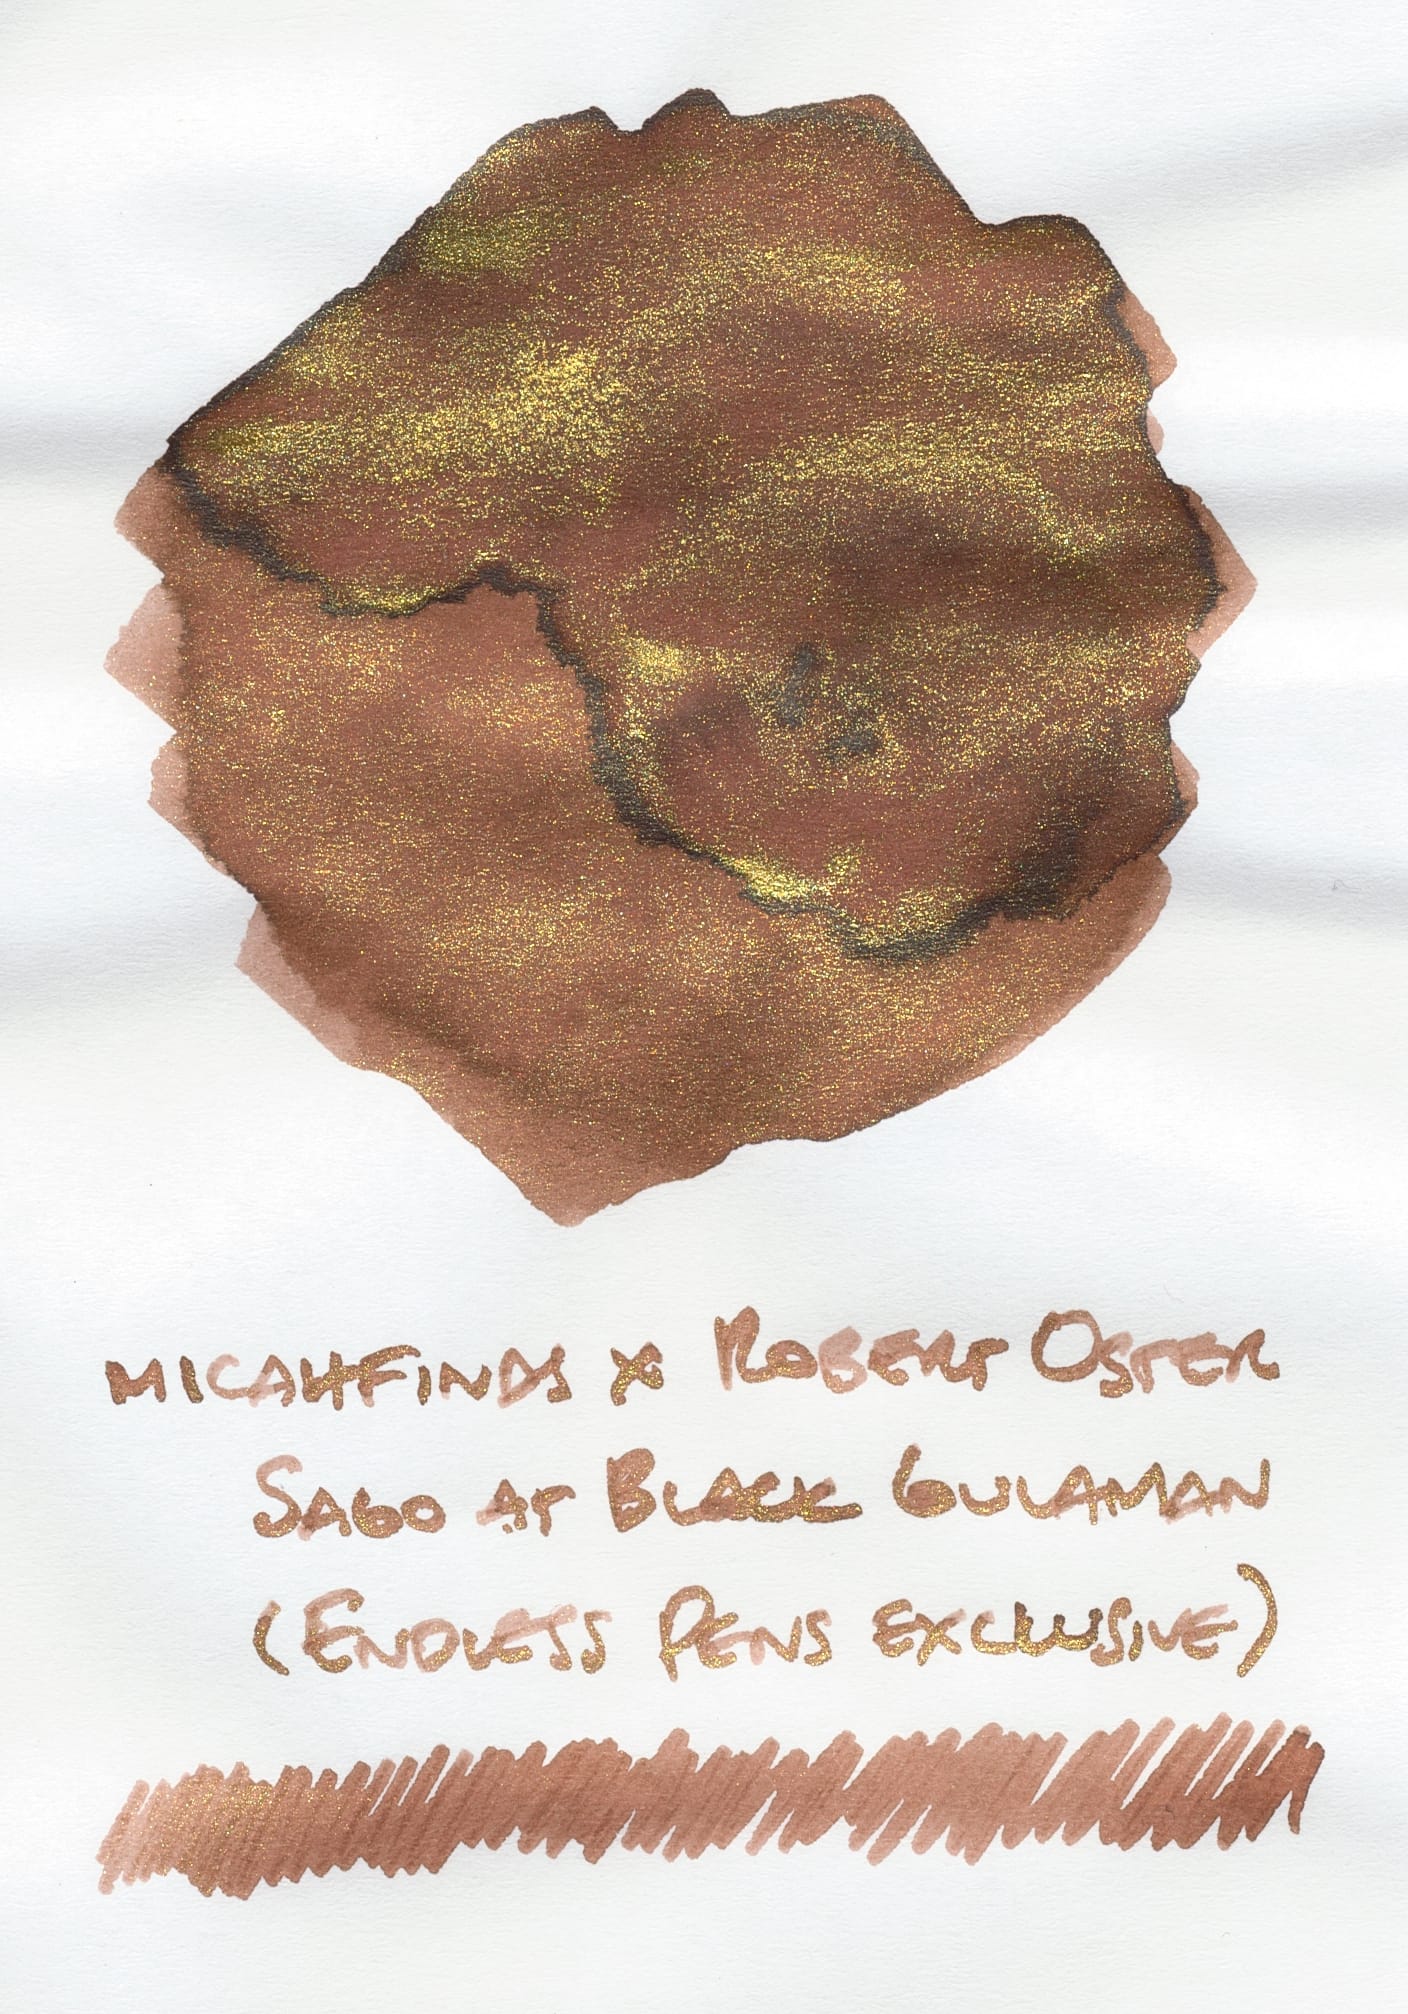 MICAHFINDS x ROBERT OSTER
SAGO AT BLACK GULAMAN
(ENDLESS PENS EXCLUSIVE)